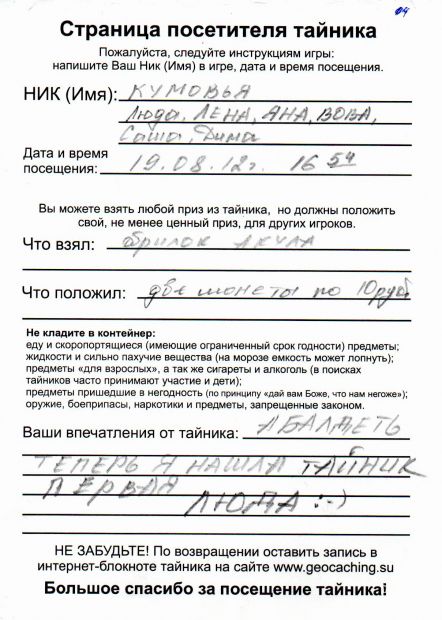 04
Страница посетителя тайника
Пожалуйста, следуйте инструкциям игры:
напишите Ваш Ник (Имя) в игре, дата и время посещения.
НИК (Имя): КУМОВЬЯ
Люда, ЛЕНА, ЯНА, ВОВА,
Саша, Дима
Дата и время
посещения: 19.08.12г. 16 54
Вы можете взять любой приз из тайника, но должны положить
свой, не менее ценный приз, для других игроков.
Что взял: брилок АКУЛА
Что положил: две монеты по 10 руб
Не кладите в контейнер:
еду и скоропортящиеся (имеющие ограниченный срок годности) предметы;
жидкости и сильно пахучие вещества (на морозе емкость может лопнуть);
предметы «для взрослых», а так же сигареты и алкоголь (в поисках
тайников часто принимают участие и дети);
предметы пришедшие в негодность (по принципу «дай вам Боже, что нам негоже»);
оружие, боеприпасы, наркотики и предметы, запрещенные законом.
Ваши впечатления от тайника: АБАЛДЕТЬ
ТЕПЕРЬ Я НАШЛА ТАЙНИК
ПЕРВАЯ ЛЮДА :-)
НЕ ЗАБУДЬТЕ! По возвращении оставить запись в
интернет-блокноте тайника на сайте www.geocaching.su
Большое спасибо за посещение тайника!